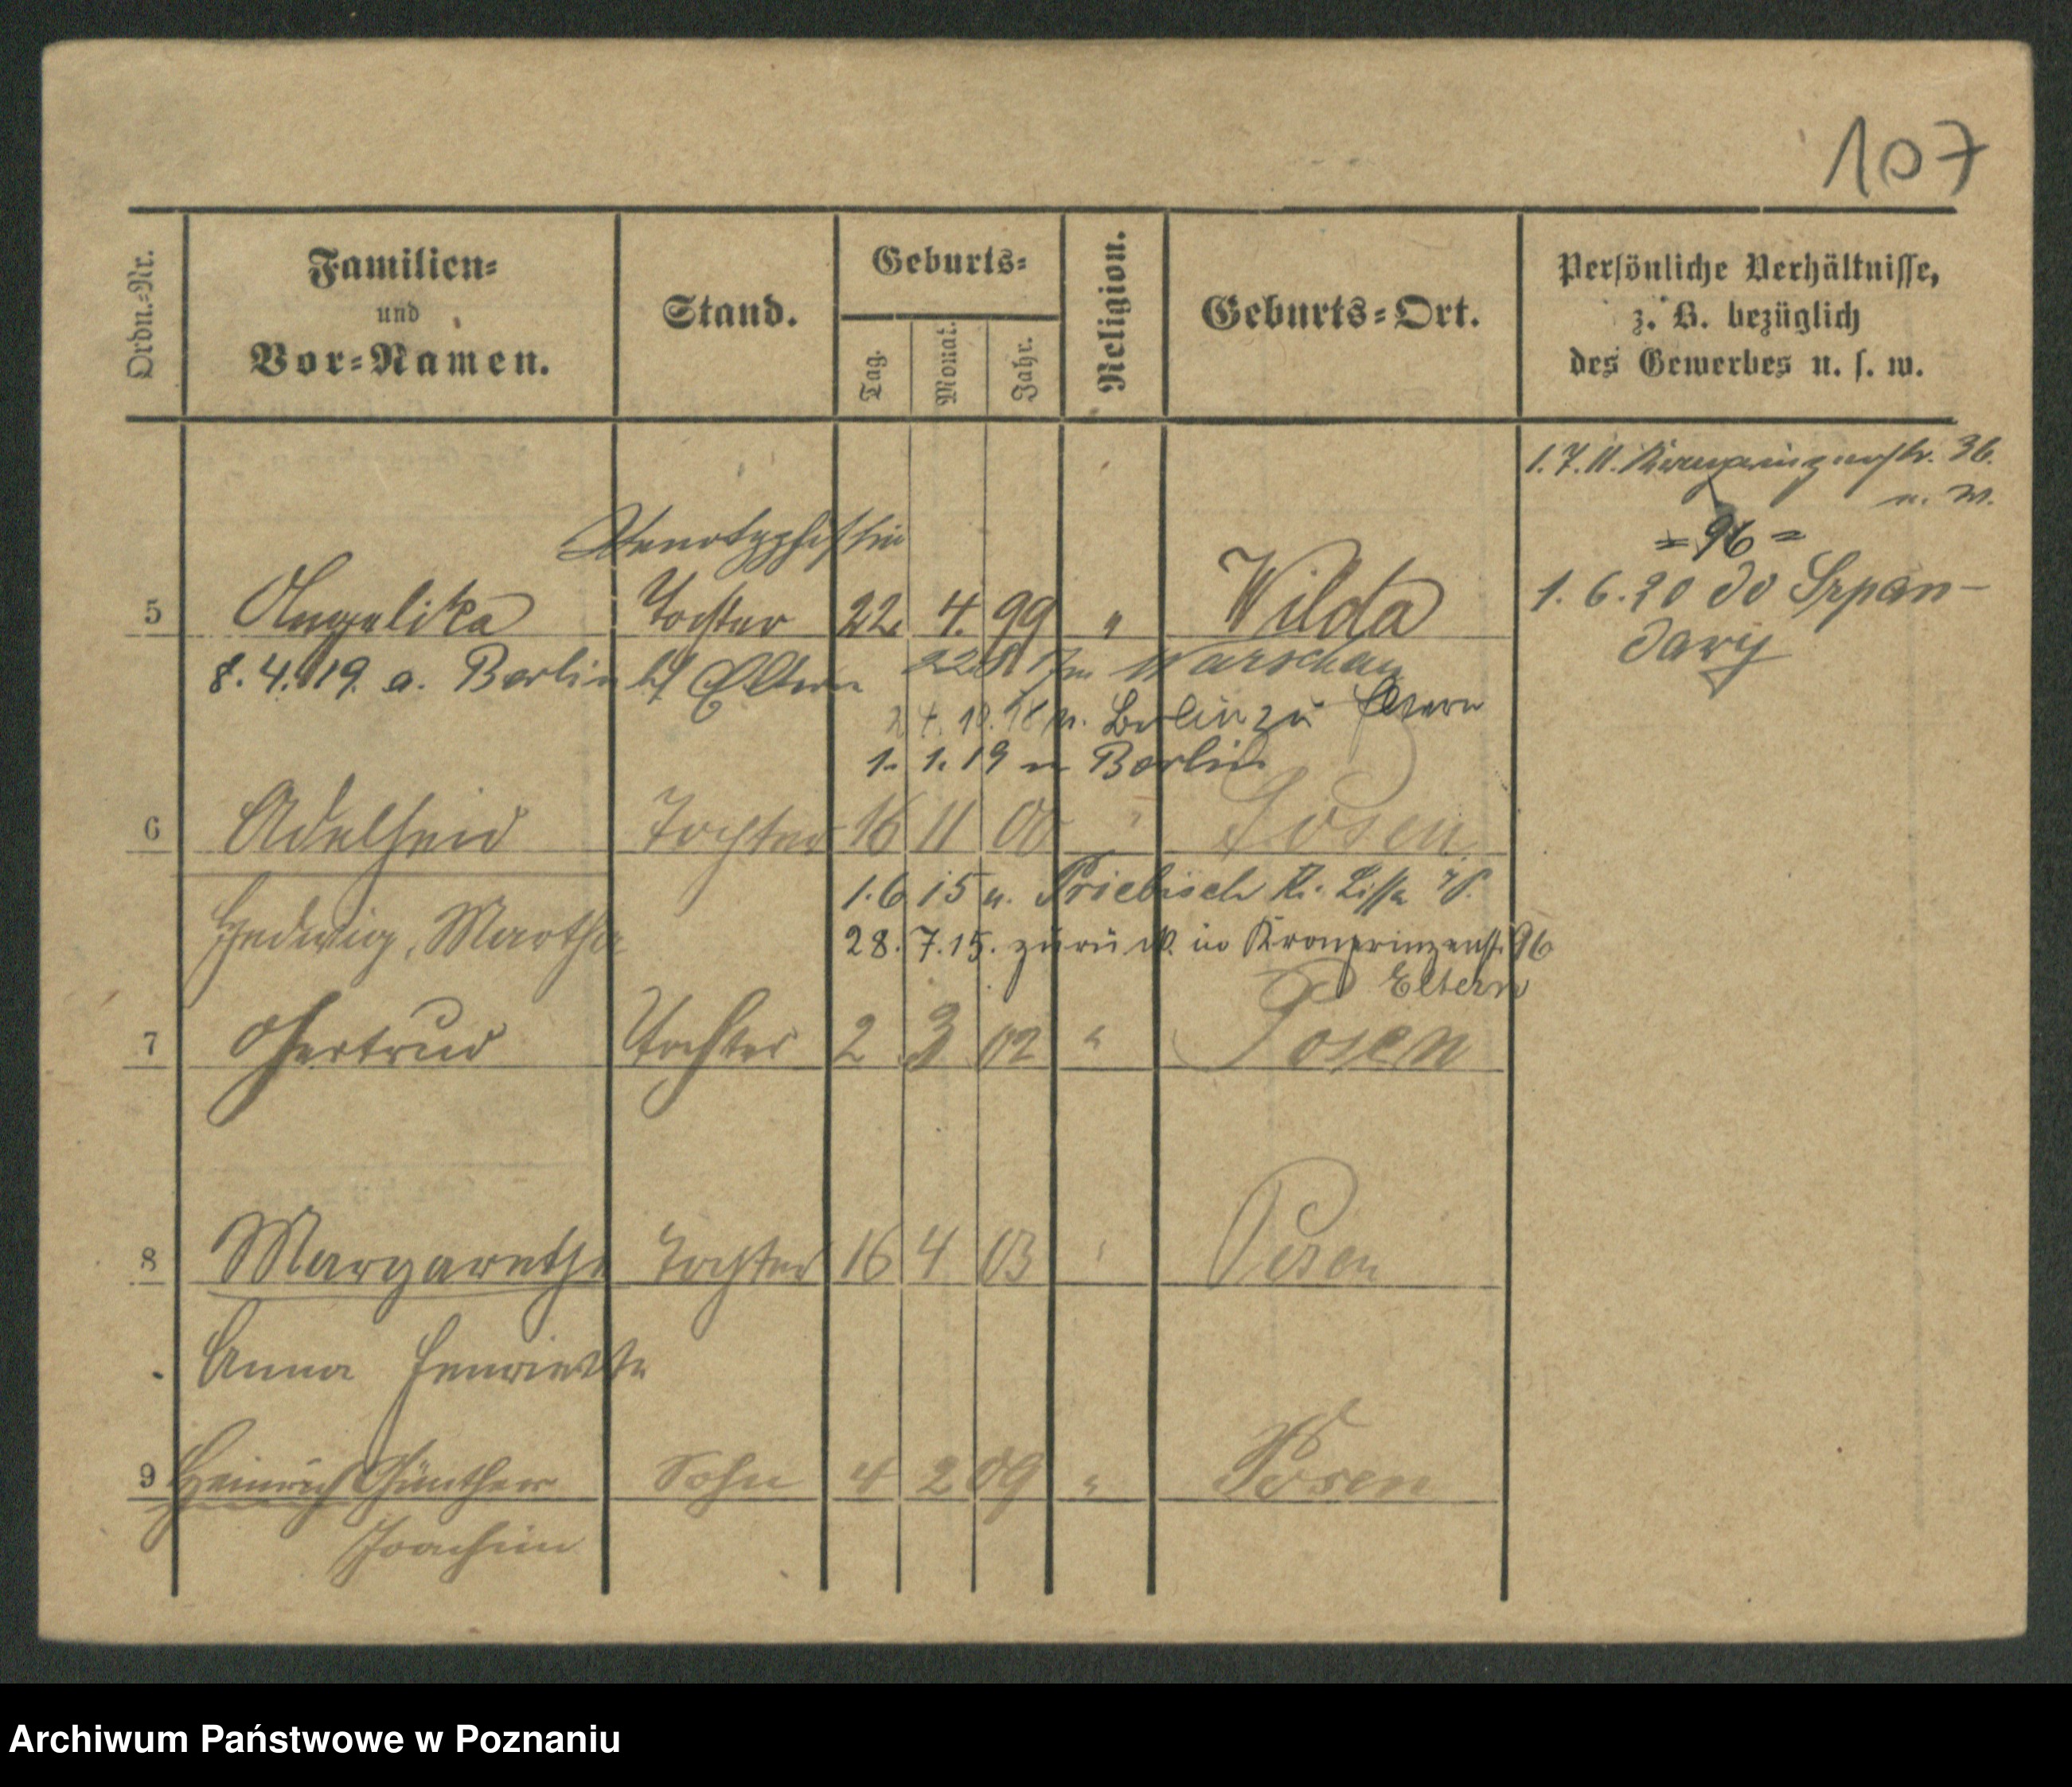 107
Ordn.-Nr.
Familien-
und
Vor-Namen.
Stand.
Geburts-
Tag.
Monat.
Jahr.
Religion.
Geburts-Ort.
Persönliche Verhältnisse,
z. B. bezüglich
des Gewerbes u. s. w.
1.7.11. Kronprinzenstr. 36.
n. W.
= 96 =
1. 6. 20 do
Stenotyphistin
5 Angelika Tochter 22. 4. 99 " Wilda
8.4.19. a. Berlin Eltern
Warschau
Berlin zu Eltern
1. 1. 19 n Berlin
6 Adelheid Tochter 16 11 00 " Posen
1.6 15 n. Priebisch Kr. Lissa
Hedwig, Martha
28. 7. 15. zurück in Kronprinzenst. 96
Eltern
7 Gertrud Tochter 2 3 02 " Posen
8 Margarethe Tochter 16 4 03 " Posen
Anna Henriette
9 Heinrich Günther Sohn 4 2 09 " Posen
Joachim
Archiwum Państwowe w Poznaniu